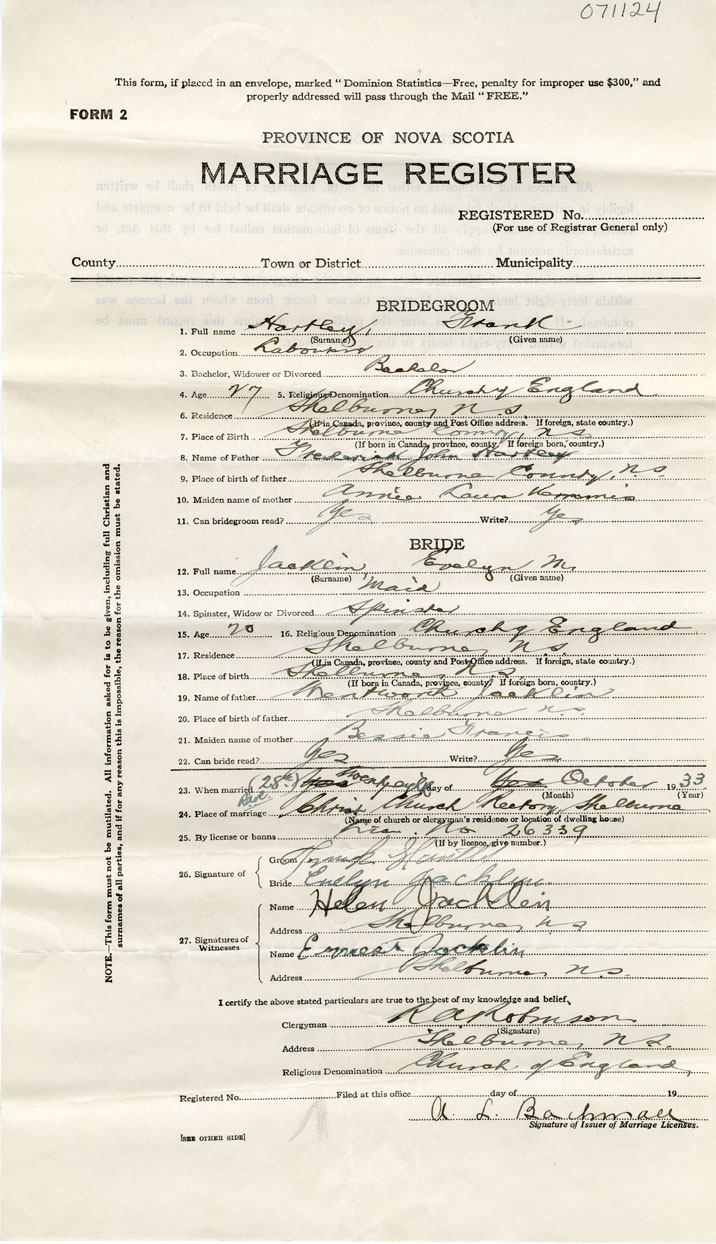 071124
This form, if placed in an envelope, marked "Dominion Statistics—Free, penalty for improper use $300," and
properly addressed will pass through the Mail "FREE."
FORM 2
PROVINCE OF NOVA SCOTIA
MARRIAGE REGISTER
REGISTERED No.
(For use of Registrar General only)
County Town or District Municipality
BRIDEGROOM
1. Full name Hartley, Frank
(Surname) (Given name)
2. Occupation Labourer
3. Bachelor, Widower or Divorced Bachelor
4. Age 27 5. Religious Denomination Church of England
6. Residence Shelburne, N.S.
(If in Canada, province, county and Post Office address. If foreign, state country.)
7. Place of Birth Shelburne County, N.S.
(If born in Canada, province, county. If foreign born, country.)
8. Name of Father Frederick John Hartley
9. Place of birth of father Shelburne County, N.S.
10. Maiden name of mother Annie Laura
11. Can bridegroom read? Yes Write? Yes
BRIDE
12. Full name Jacklin, Evelyn M.
(Surname) (Given name)
13. Occupation Maid
14. Spinster, Widow or Divorced Spinster
15. Age 20 16. Religious Denomination Church of England
17. Residence Shelburne, N.S.
(If in Canada, province, county and Post Office address. If foreign, state country.)
18. Place of birth Shelburne, N.S.
(If born in Canada, province, county. If foreign born, country.)
19. Name of father Wentworth Jacklin
20. Place of birth of father Shelburne N.S.
21. Maiden name of mother Bessie Francis
22. Can bride read? Yes Write? Yes
23. When married (28th) Twenty eighth day of October 1933
(Month) (Year)
24. Place of marriage Christ Church Rectory, Shelburne
(Name of church or clergyman's residence or location of dwelling house)
25. By license or banns No 26339
(If by licence, give number.)
26. Signature of Groom Frank Hartley
Bride Evelyn Jacklin
27. Signatures of Witnesses
Name Helen Jacklin
Address Shelburne N.S.
Name Jacklin
Address Shelburne, N.S.
I certify the above stated particulars are true to the best of my knowledge and belief,
Clergyman R A Robinson
(Signature)
Address Shelburne, N.S.
Religious Denomination Church of England,
Registered No. Filed at this office day of 19
A. L.
Signature of Issuer of Marriage Licenses.
[SEE OTHER SIDE]
NOTE.—This form must not be mutilated. All information asked for is to be given, including full Christian and
surnames of all parties, and if for any reason this is impossible, the reason for the omission must be stated.